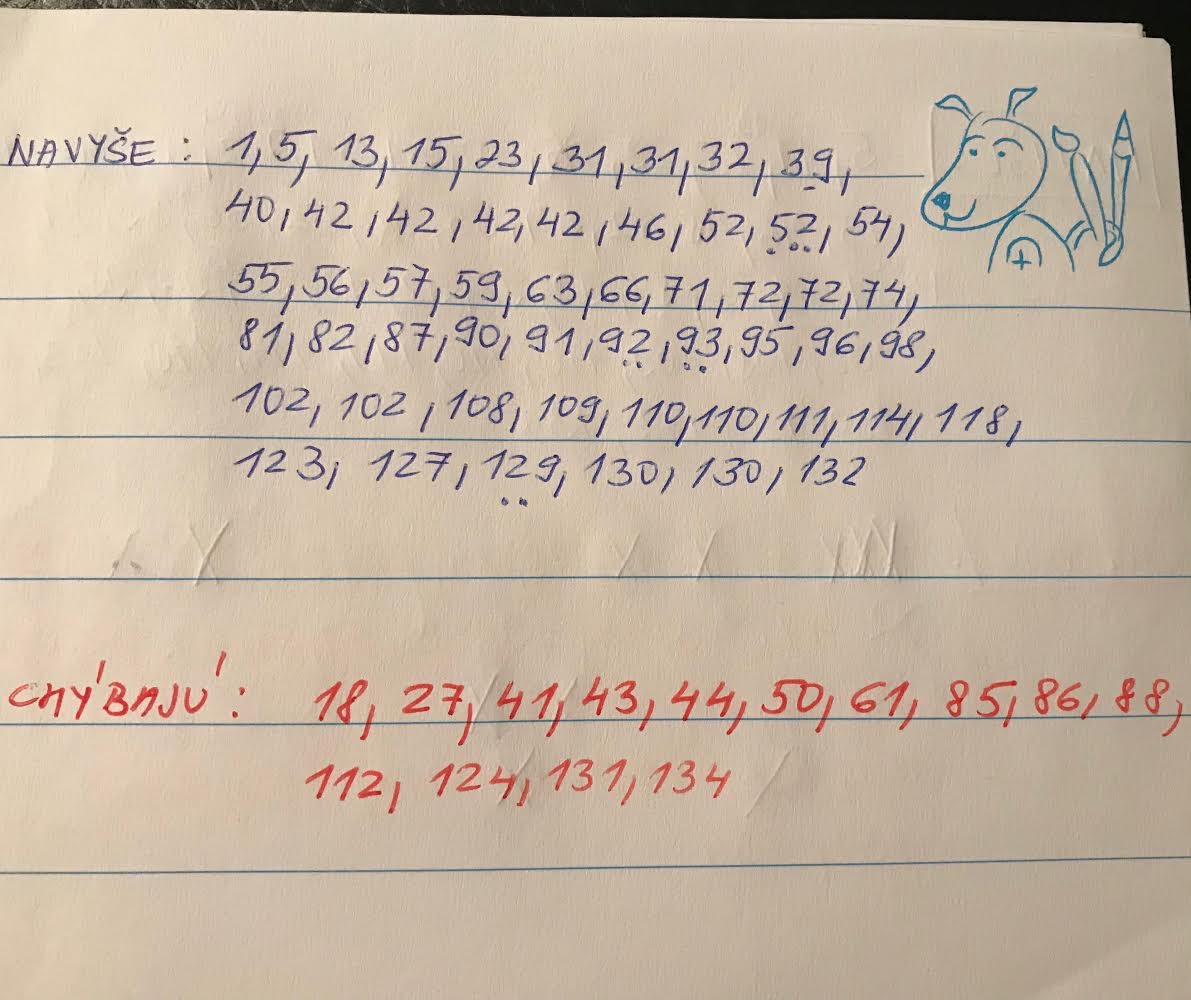 NAVYŠE : 1, 5, 13, 15, 23, 31, 31, 32, 39,
40, 42, 42, 42, 42, 46, 52, 52, 54,
55, 56, 57, 59, 63, 66, 71, 72, 72, 74,
81, 82, 87, 90, 91, 92, 93, 95, 96, 98,
102, 102, 108, 109, 110, 110, 111, 114, 118,
123, 127, 129, 130, 130, 132
CHÝBAJÚ : 18, 27, 41, 43, 44, 50, 61, 85, 86, 88,
112, 124, 131, 134